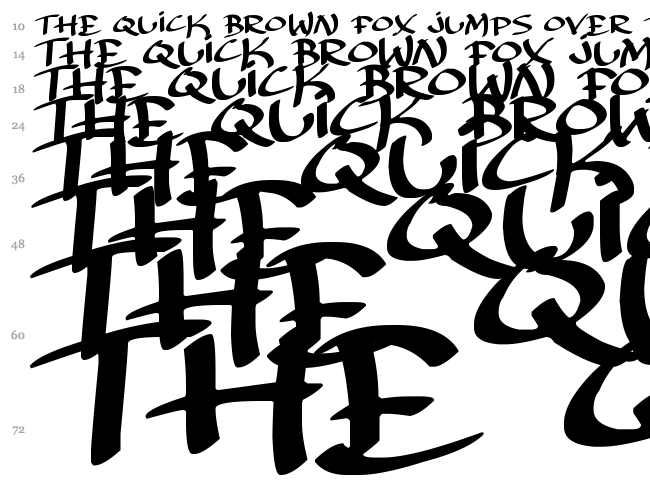 10 THE QUiCK BROWN FOX jUMPS OVER
14 THE QUiCK BROWN FOX jUM
18 THE QUiCK BROWN FO
24 THE QUiCK BROW
36 THE QUiCK
48 THE QUi
60 THE QU
72 THE